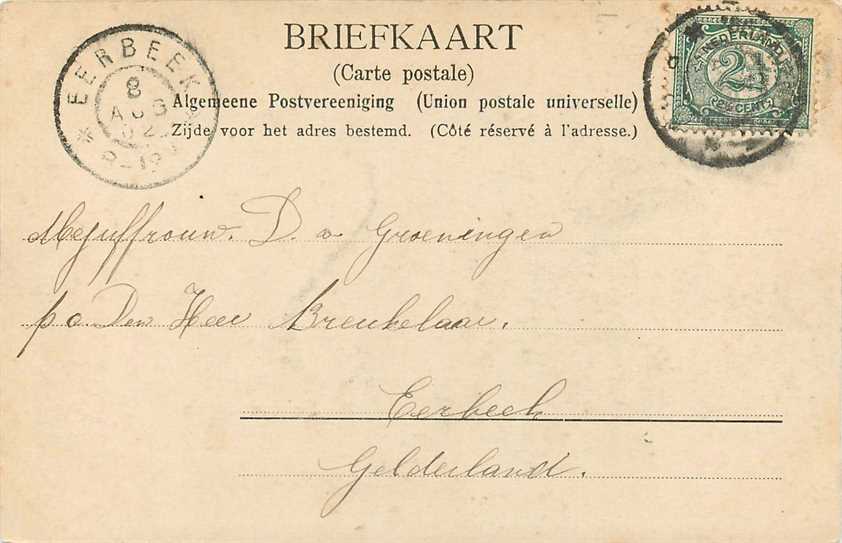 BRIEFKAART
(Carte postale)
Algemeene Postvereeniging (Union postale universelle)
Zijde voor het adres bestemd. (Côté réservé à l'adresse.)
EERBEEK
8
AUG
02
8-12V
NEDERLAND
2½
2½ CENT
Mejuffrouw. D. v Groeningen
p a. Den Heer Breukelaar.
Eerbeek
Gelderland.